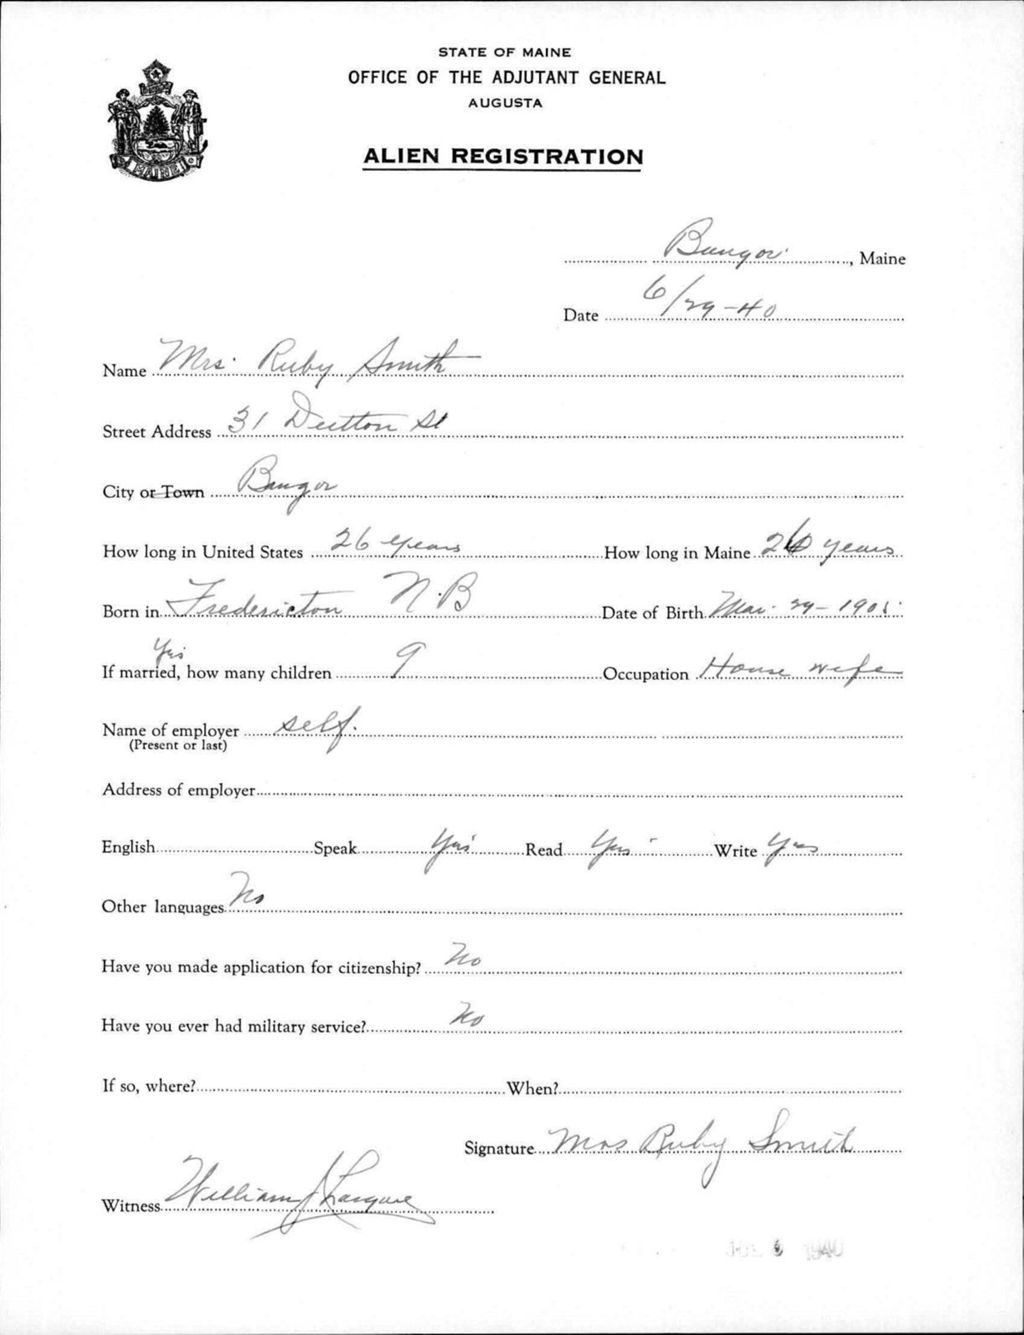 STATE OF MAINE
OFFICE OF THE ADJUTANT GENERAL
AUGUSTA
ALIEN REGISTRATION
MAINE
Bangor, Maine
Date 6/29-40
Name Mrs. Ruby Smith
Street Address 31 Dutton St
City or Town Bangor
How long in United States 26 years How long in Maine 26 years
Born in Fredericton N.B Date of Birth Mar. 29-
Yes
If married, how many children 9 Occupation House wife
Name of employer self.
(Present or last)
Address of employer
English Speak Yes Read Yes Write Yes
Other languages No
Have you made application for citizenship? No
Have you ever had military service? No
If so, where? When?
Signature Mrs Ruby Smith
Witness William J
1940